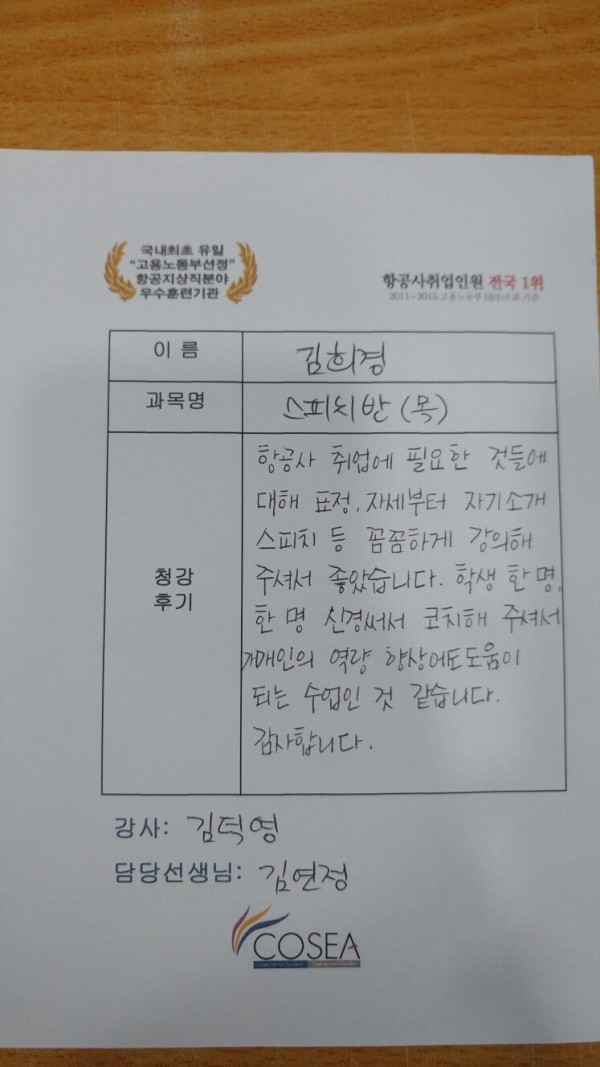 국내최초 유일
"고용노동부선정"
항공지상직분야
우수훈련기관
항공사취업인원 전국 1위
2011~2015 고용노동부 기준
이 름
김희경
과목명
스피치반 (목)
청강
후기
항공사 취업에 필요한 것들에
대해 표정, 자세부터 자기소개
스피치 등 꼼꼼하게 강의해
주셔서 좋았습니다. 학생 한 명,
한 명 신경써서 코치해 주셔서
개인의 역량 향상에도 도움이
되는 수업인 것 같습니다.
감사합니다.
강사: 김덕영
담당선생님: 김연정
COSEA